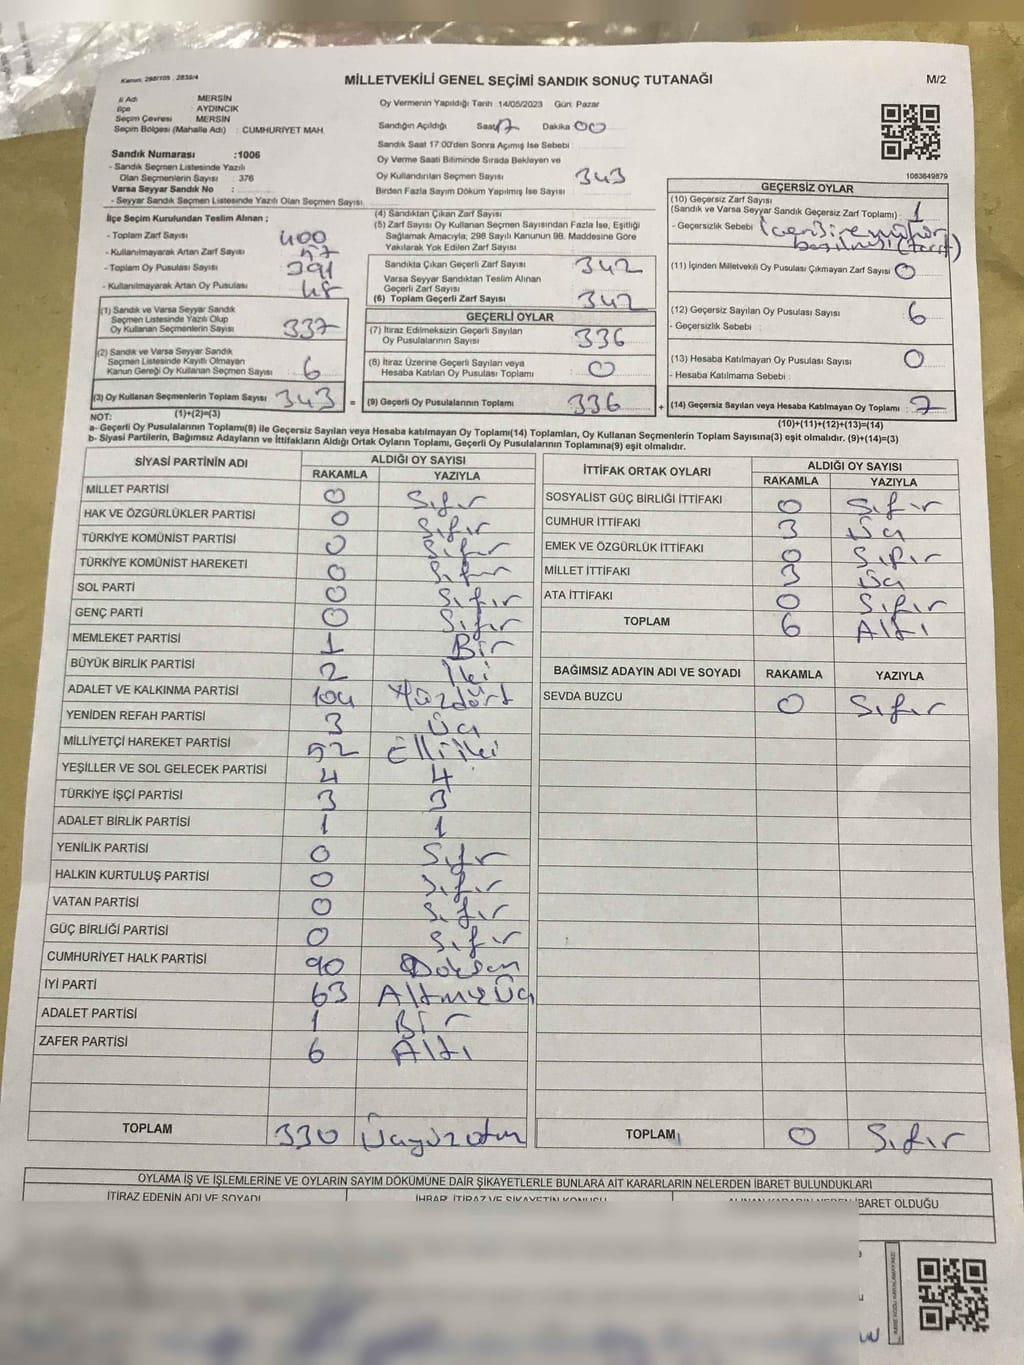 Kanun: 298/105 , 2839/4
MİLLETVEKİLİ GENEL SEÇİMİ SANDIK SONUÇ TUTANAĞI
M/2
İl Adı : MERSİN
İlçe : AYDINCIK
Seçim Çevresi : MERSİN
Seçim Bölgesi (Mahalle Adı) : CUMHURİYET MAH.
Sandık Numarası :1006
- Sandık Seçmen Listesinde Yazılı
Olan Seçmenlerin Sayısı : 376
Varsa Seyyar Sandık No :
- Seyyar Sandık Seçmen Listesinde Yazılı Olan Seçmen Sayısı
Oy Vermenin Yapıldığı Tarih :14/05/2023 Gün: Pazar
Sandığın Açıldığı Saat 17 Dakika 00
Sandık Saat 17:00'den Sonra Açımış İse Sebebi :
Oy Verme Saati Bitiminde Sırada Bekleyen ve
Oy Kullandırılan Seçmen Sayısı : 343
Birden Fazla Sayım Döküm Yapılmış İse Sayısı :
1083649879
İlçe Seçim Kurulundan Teslim Alınan ;
- Toplam Zarf Sayısı : 400
- Kullanılmayarak Artan Zarf Sayısı : 57
- Toplam Oy Pusulası Sayısı : 391
- Kullanılmayarak Artan Oy Pusulası : 48
(1) Sandık ve Varsa Seyyar Sandık
Seçmen Listesinde Yazılı Olup
Oy Kullanan Seçmenlerin Sayısı : 337
(2) Sandık ve Varsa Seyyar Sandık
Seçmen Listesinde Kayıtlı Olmayan
Kanun Gereği Oy Kullanan Seçmen Sayısı : 6
(3) Oy Kullanan Seçmenlerin Toplam Sayısı : 343 =
(1)+(2)=(3)
(4) Sandıktan Çıkan Zarf Sayısı :
(5) Zarf Sayısı Oy Kullanan Seçmen Sayısından Fazla İse, Eşitliği
Sağlamak Amacıyla, 298 Sayılı Kanunun 98. Maddesine Göre
Yakılarak Yok Edilen Zarf Sayısı :
Sandıkta Çıkan Geçerli Zarf Sayısı : 342
Varsa Seyyar Sandıktan Teslim Alınan
Geçerli Zarf Sayısı :
(6) Toplam Geçerli Zarf Sayısı : 342
GEÇERLİ OYLAR
(7) İtiraz Edilmeksizin Geçerli Sayılan
Oy Pusulalarının Sayısı : 336
(8) İtiraz Üzerine Geçerli Sayılan veya
Hesaba Katılan Oy Pusulası Toplamı : 0
(9) Geçerli Oy Pusulalarının Toplamı : 336 +
GEÇERSİZ OYLAR
(10) Geçersiz Zarf Sayısı
(Sandık ve Varsa Seyyar Sandık Geçersiz Zarf Toplamı) : 1
- Geçersizlik Sebebi :
(11) İçinden Milletvekili Oy Pusulası Çıkmayan Zarf Sayısı : 0
(12) Geçersiz Sayılan Oy Pusulası Sayısı : 6
- Geçersizlik Sebebi :
(13) Hesaba Katılmayan Oy Pusulası Sayısı : 0
- Hesaba Katılmama Sebebi :
(14) Geçersiz Sayılan veya Hesaba Katılmayan Oy Toplamı : 7
(10)+(11)+(12)+(13)=(14)
NOT:
a- Geçerli Oy Pusulalarının Toplamı(9) ile Geçersiz Sayılan veya Hesaba Katılmayan Oy Toplamı(14) Toplamları, Oy Kullanan Seçmenlerin Toplam Sayısına(3) eşit olmalıdır. (9)+(14)=(3)
b- Siyasi Partilerin, Bağımsız Adayların ve İttifakların Aldığı Ortak Oyların Toplamı, Geçerli Oy Pusulalarının Toplamına(9) eşit olmalıdır.
SİYASİ PARTİNİN ADI ALDIĞI OY SAYISI
RAKAMLA YAZIYLA
MİLLET PARTİSİ 0 Sıfır
HAK VE ÖZGÜRLÜKLER PARTİSİ 0 Sıfır
TÜRKİYE KOMÜNİST PARTİSİ 0 Sıfır
TÜRKİYE KOMÜNİST HAREKETİ 0 Sıfır
SOL PARTİ 0 Sıfır
GENÇ PARTİ 0 Sıfır
MEMLEKET PARTİSİ 1 Bir
BÜYÜK BİRLİK PARTİSİ 2 İki
ADALET VE KALKINMA PARTİSİ 104 Yüzdört
YENİDEN REFAH PARTİSİ 3 Üç
MİLLİYETÇİ HAREKET PARTİSİ 52 Elliiki
YEŞİLLER VE SOL GELECEK PARTİSİ 4 4
TÜRKİYE İŞÇİ PARTİSİ 3 3
ADALET BİRLİK PARTİSİ 1 1
YENİLİK PARTİSİ 0 Sıfır
HALKIN KURTULUŞ PARTİSİ 0 Sıfır
VATAN PARTİSİ 0 Sıfır
GÜÇ BİRLİĞİ PARTİSİ 0 Sıfır
CUMHURİYET HALK PARTİSİ 90 Doksan
İYİ PARTİ 63 Altmışüç
ADALET PARTİSİ 1 Bir
ZAFER PARTİSİ 6 Altı
TOPLAM 330 Üçyüzotuz
İTTİFAK ORTAK OYLARI ALDIĞI OY SAYISI
RAKAMLA YAZIYLA
SOSYALİST GÜÇ BİRLİĞİ İTTİFAKI 0 Sıfır
CUMHUR İTTİFAKI 3 Üç
EMEK VE ÖZGÜRLÜK İTTİFAKI 0 Sıfır
MİLLET İTTİFAKI 3 Üç
ATA İTTİFAKI 0 Sıfır
TOPLAM 6 Altı
BAĞIMSIZ ADAYIN ADI VE SOYADI RAKAMLA YAZIYLA
SEVDA BUZCU 0 Sıfır
TOPLAM 0 Sıfır
OYLAMA İŞ VE İŞLEMLERİNE VE OYLARIN SAYIM DÖKÜMÜNE DAİR ŞİKAYETLERLE BUNLARA AİT KARARLARIN NELERDEN İBARET BULUNDUKLARI
İTİRAZ EDENİN ADI VE SOYADI İHBAR, İTİRAZ VE ŞİKAYETİN KONUSU ALINAN KARARIN NEDEN İBARET OLDUĞU